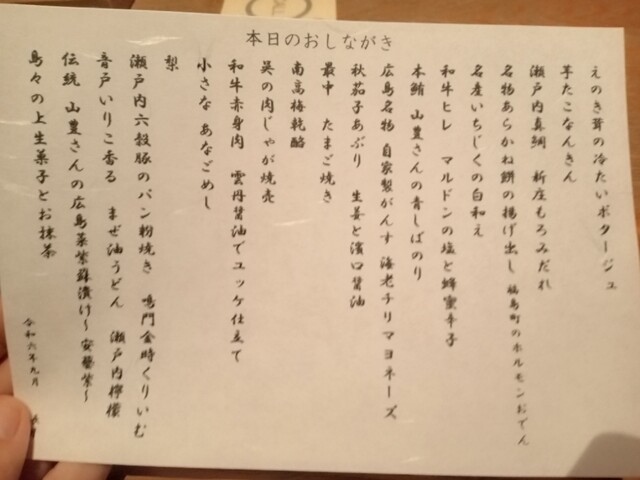 本日のおしながき
えのき茸の冷たいポタージュ
芋たこなんきん
瀬戸内真鯛 新庄もろみだれ
名物あらかね餅の揚げ出し 福島町のホルモンおでん
名産いちじくの白和え
和牛ヒレ マルドンの塩と蜂蜜辛子
本鮪 山豊さんの青しばのり
広島名物 自家製がんす 海老チリマヨネーズ
秋茄子あぶり 生姜と濱口醤油
最中 たまご焼き
南高梅乾酪
呉の肉じゃが焼売
和牛赤身肉 雲丹醤油でユッケ仕立て
小さな あなごめし
梨
瀬戸内六穀豚のパン粉焼き 鳴門金時くりいむ
音戸いりこ香る まぜ油うどん 瀬戸内檸檬
伝統 山豊さんの広島菜紫蘇漬け〜安藝紫〜
島々の上生菓子とお抹茶
令和六年九月